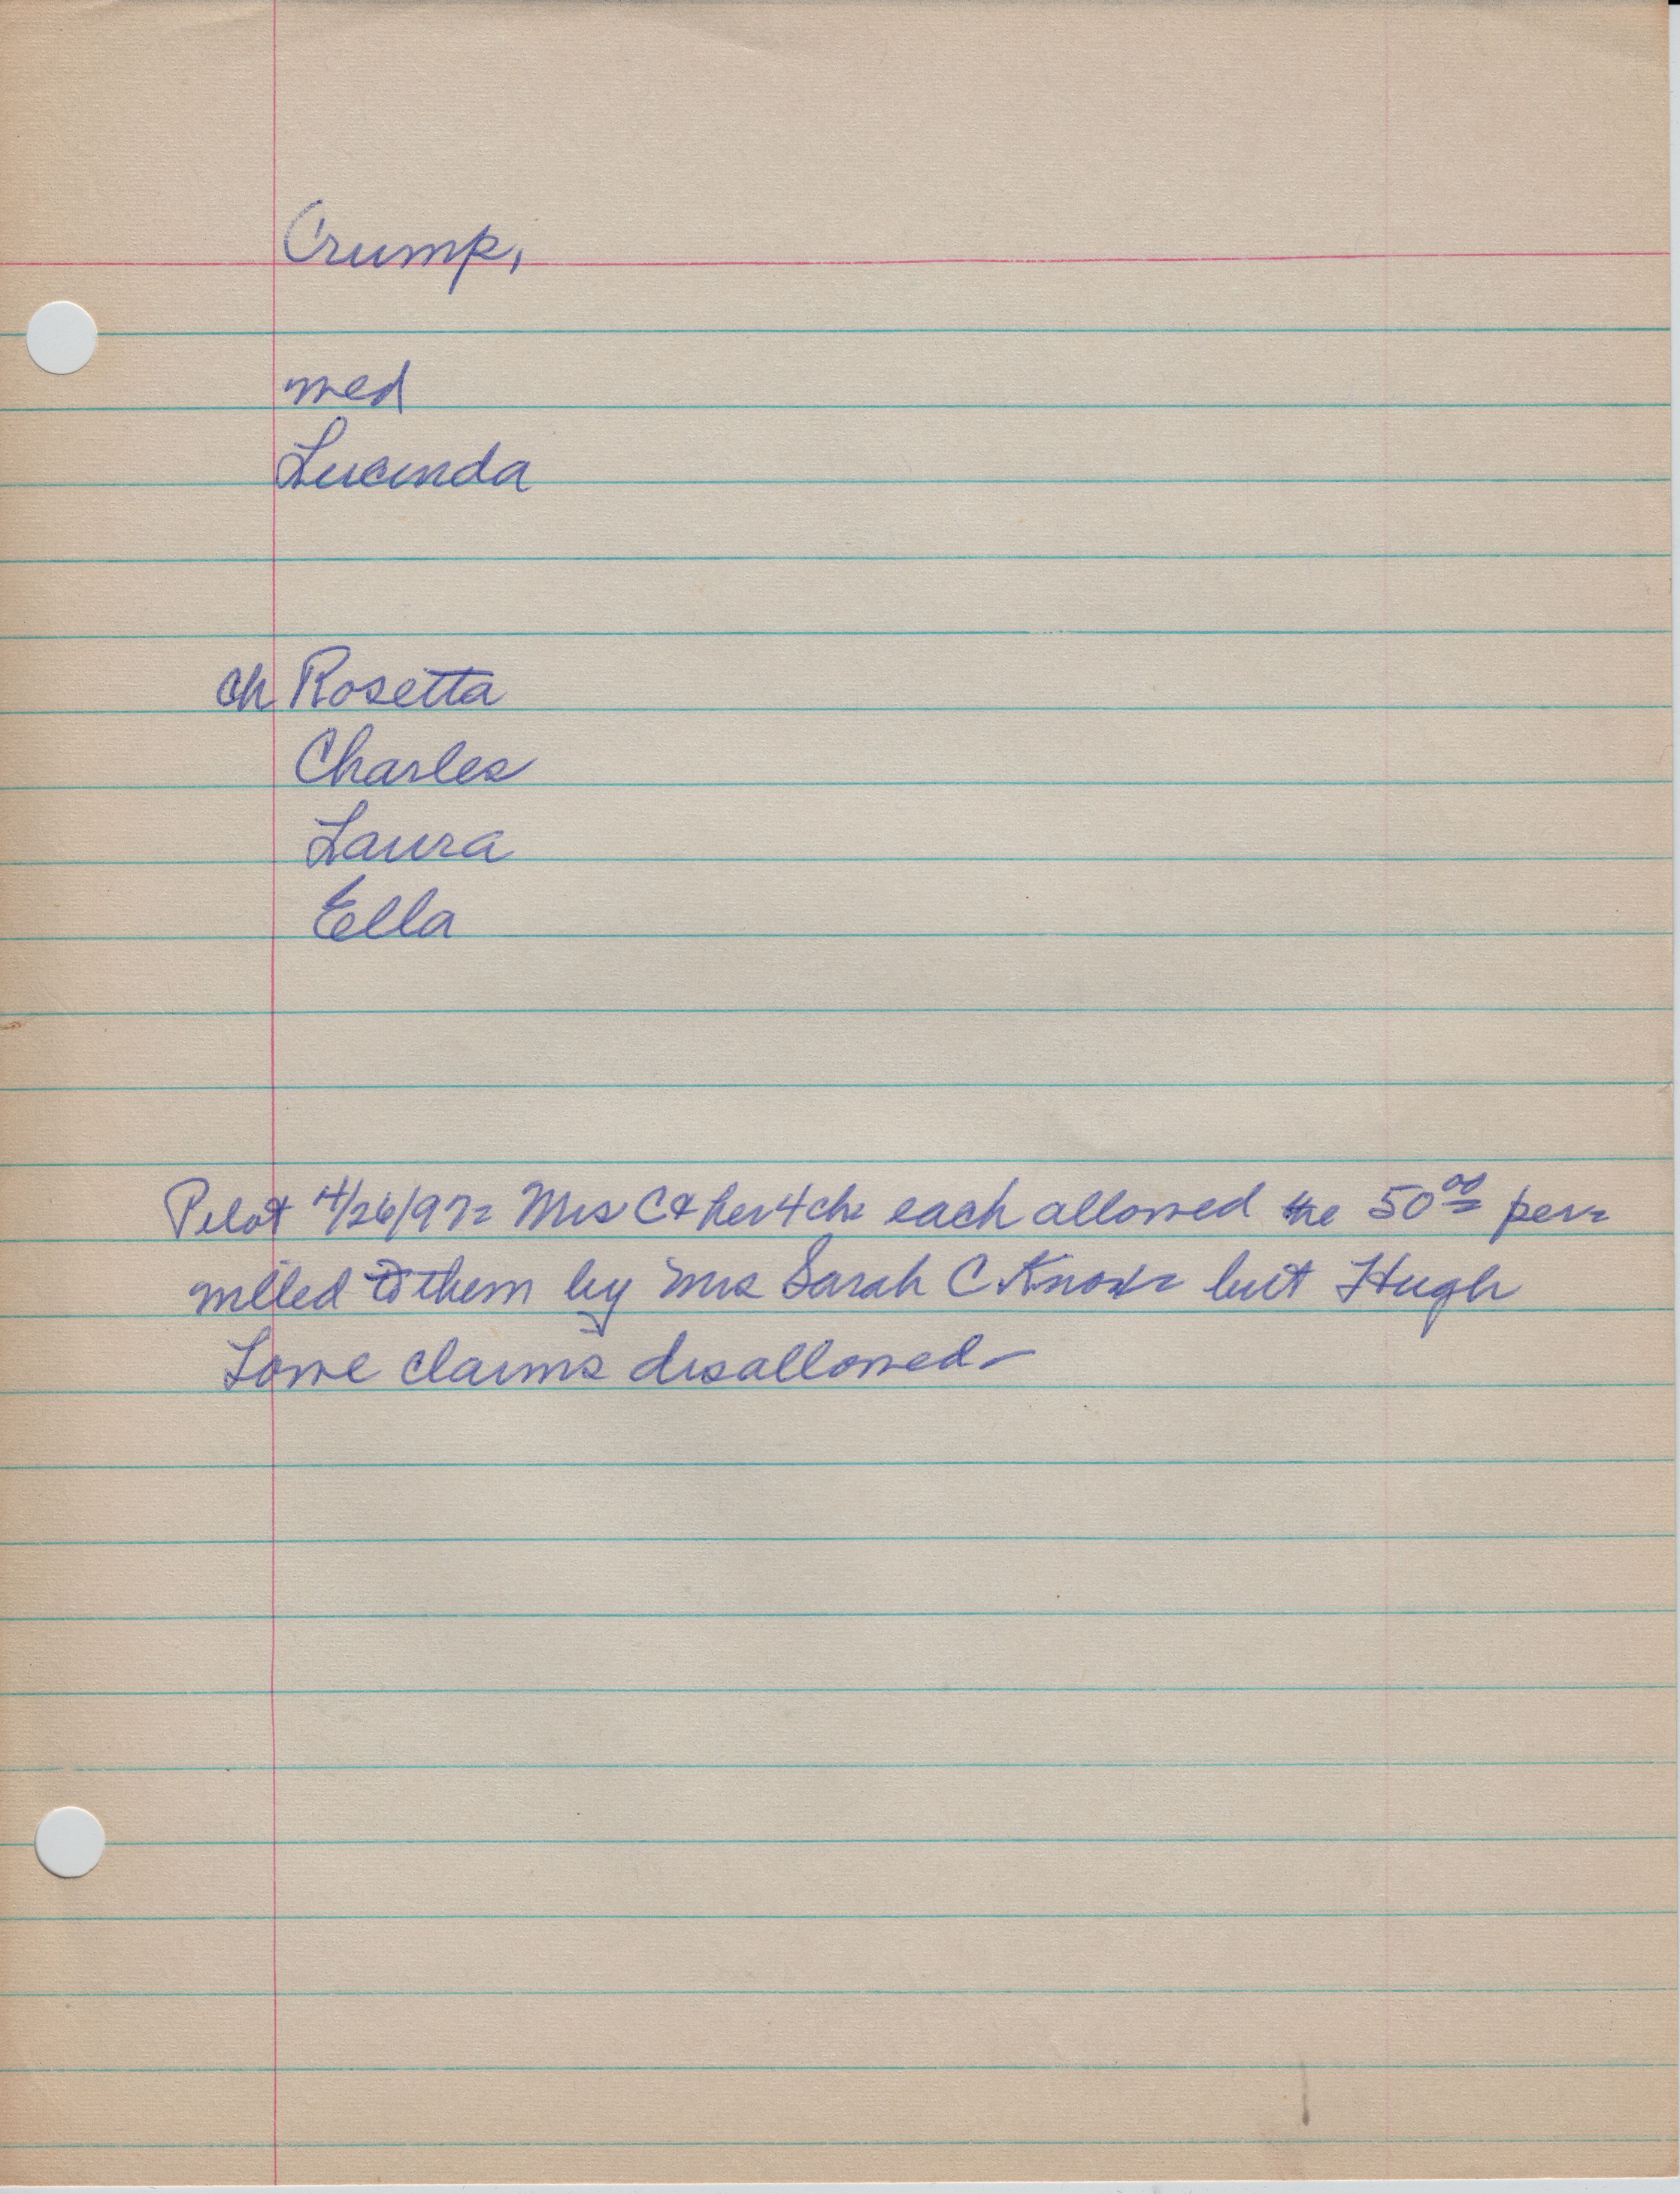 Crump,
med
Lucinda
ch Rosetta
Charles
Laura
Ella
Pilot 4/26/97= Mrs C & her 4 ch= each allowed the 50 00 per=
willed to them by Mrs Sarah C Knox= but Hugh
Lowe claims disallowed-